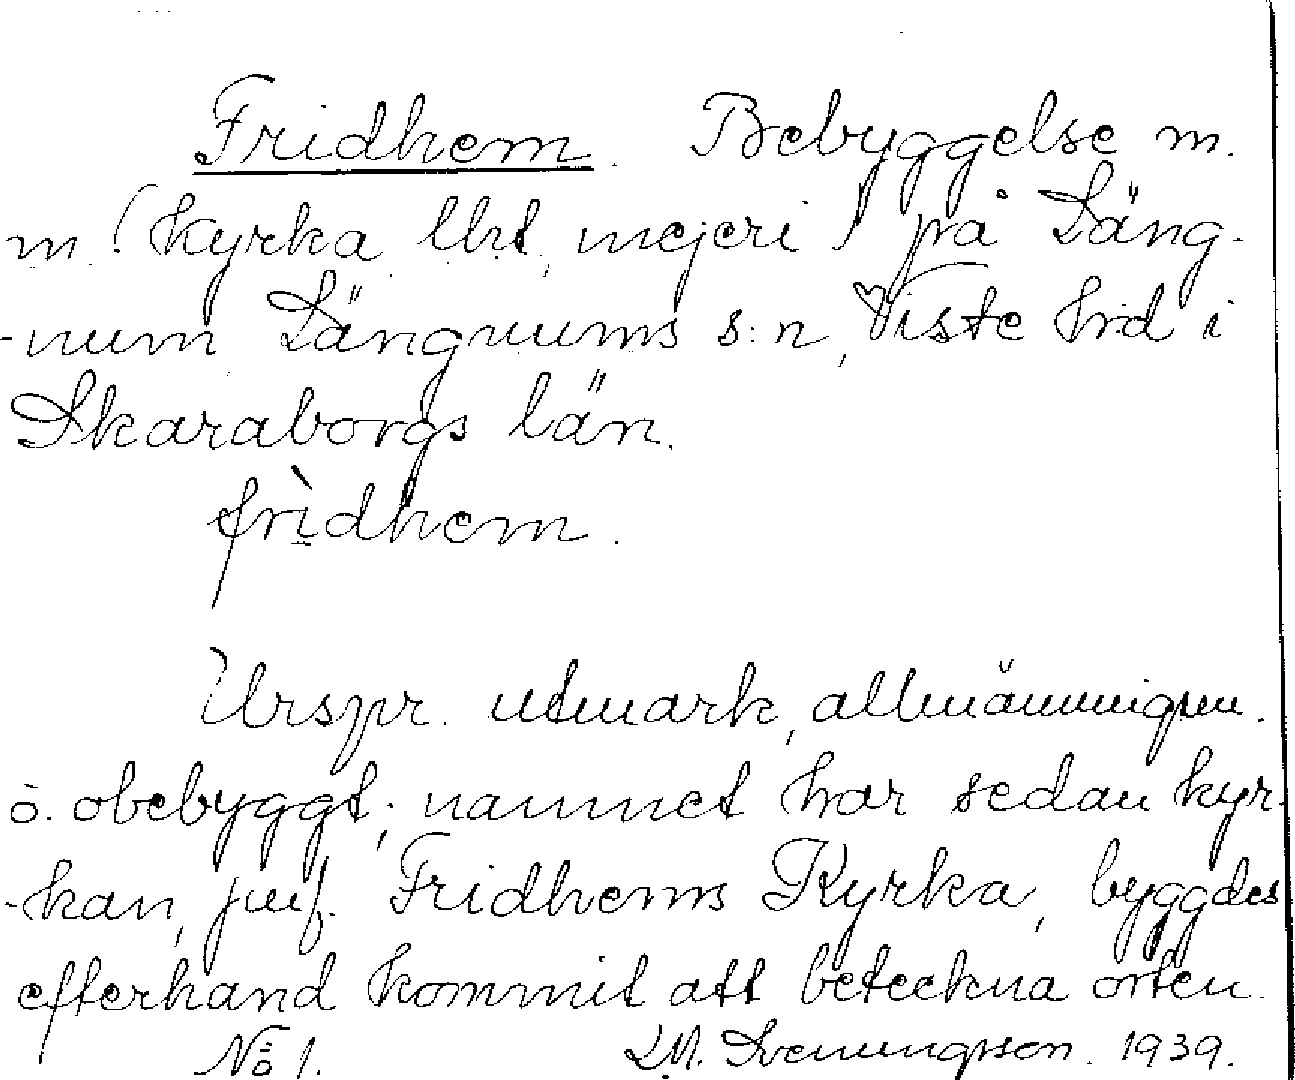 Fridhem. Bebyggelse m.
m. (kyrka, mejeri) på Läng-
-num Längnums s:n, Viste hrd i
Skaraborgs län.
frìdhem.
Urspr. utmark, allmänningen.
o. obebyggt; namnet har sedan kyr-
-kan, jmf. Fridhems Kyrka, byggdes
efterhand kommit att beteckna orten.
No 1. Svenungsson. 1939.